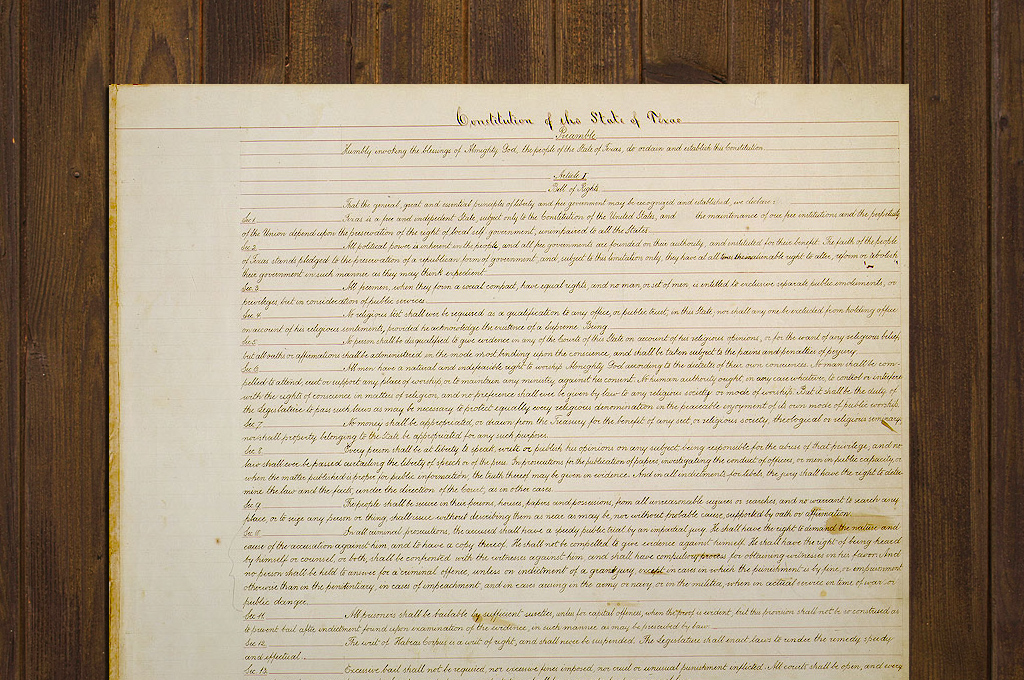 Constitution of the State of Texas
Preamble
Humbly invoking the blessings of Almighty God, the people of the State of Texas, do ordain and establish this Constitution
Article I
Bill of Rights
That the general, great and essential principles of liberty and free government may be recognized and established, we declare:
Sec 1 Texas is a free and independent State, subject only to the Constitution of the United States, and the maintenance of our free institutions and the perpetuity
of the Union depend upon the preservation of the right of local self government, unimpaired to all the States.
Sec 2 All political power is inherent in the people, and all free governments are founded on their authority, and instituted for their benefit. The faith of the people
of Texas stands pledged to the preservation of a republican form of government, and, subject to this limitation only, they have at all times the inalienable right to alter, reform or abolish
their government in such manner, as they may think expedient.
Sec 3 All freemen, when they form a social compact, have equal rights, and no man, or set of men, is entitled to exclusive separate public emoluments, or
privileges, but in consideration of public services.
Sec 4 No religious test shall ever be required as a qualification to any office, or public trust, in this State, nor shall any one be excluded from holding office
on account of his religious sentiments, provided he acknowledge the existence of a Supreme Being
Sec 5 No person shall be disqualified to give evidence in any of the Courts of this State on account of his religious opinions, or for the want of any religious belief,
but all oaths or affirmations shall be administered in the mode most binding upon the conscience, and shall be taken subject to the pains and penalties of perjury.
Sec 6 All men have a natural and indefeasible right to worship Almighty God according to the dictates of their own consciences. No man shall be com-
pelled to attend, erect or support any place of worship, or to maintain any ministry against his consent. No human authority ought, in any case whatever, to control or interfere
with the rights of conscience in matters of religion, and no preference shall ever be given by law to any religious society or mode of worship. But it shall be the duty of
the Legislature to pass such laws as may be necessary to protect equally every religious denomination in the peaceable enjoyment of its own mode of public worship.
Sec 7 No money shall be appropriated, or drawn from the Treasury for the benefit of any sect, or religious society, theological or religious seminary,
nor shall property belonging to the State be appropriated for any such purposes.
Sec 8 Every person shall be at liberty to speak, write or publish his opinions on any subject, being responsible for the abuse of that privilege, and no
law shall ever be passed curtailing the liberty of speech or of the press. In prosecutions for the publication of papers, investigating the conduct of officers, or men in public capacity, or
when the matter published is proper for public information, the truth thereof may be given in evidence. And in all indictments for libels, the jury shall have the right to deter-
mine the law and the facts, under the direction of the Court, as in other cases.
Sec 9 The people shall be secure in their persons, houses, papers and possessions, from all unreasonable seizures or searches, and no warrant to search any
place, or to seize any person or thing, shall issue without describing them as near as may be, nor without probable cause, supported by oath or affirmation.
Sec 10 In all criminal prosecutions, the accused shall have a speedy public trial by an impartial jury. He shall have the right to demand the nature and
cause of the accusation against him, and to have a copy thereof. He shall not be compelled to give evidence against himself. He shall have the right of being heard
by himself or counsel, or both, shall be confronted with the witnesses against him, and shall have compulsory process for obtaining witnesses in his favor. And
no person shall be held to answer for a criminal offence, unless on indictment of a grand jury, except in cases in which the punishment is by fine, or imprisonment
otherwise than in the penitentiary, in cases of impeachment, and in cases arising in the army or navy, or in the militia, when in actual service in time of war or
public danger.
Sec 11 All prisoners shall be bailable by sufficient sureties, unless for capital offences, when the proof is evident, but this provision shall not be so construed as
to prevent bail after indictment found upon examination of the evidence, in such manner as may be prescribed by law.
Sec 12 The writ of Habeas Corpus is a writ of right, and shall never be suspended. The Legislature shall enact laws to render the remedy speedy
and effectual.
Sec 13 Excessive bail shall not be required, nor excessive fines imposed, nor cruel or unusual punishment inflicted. All courts shall be open, and every